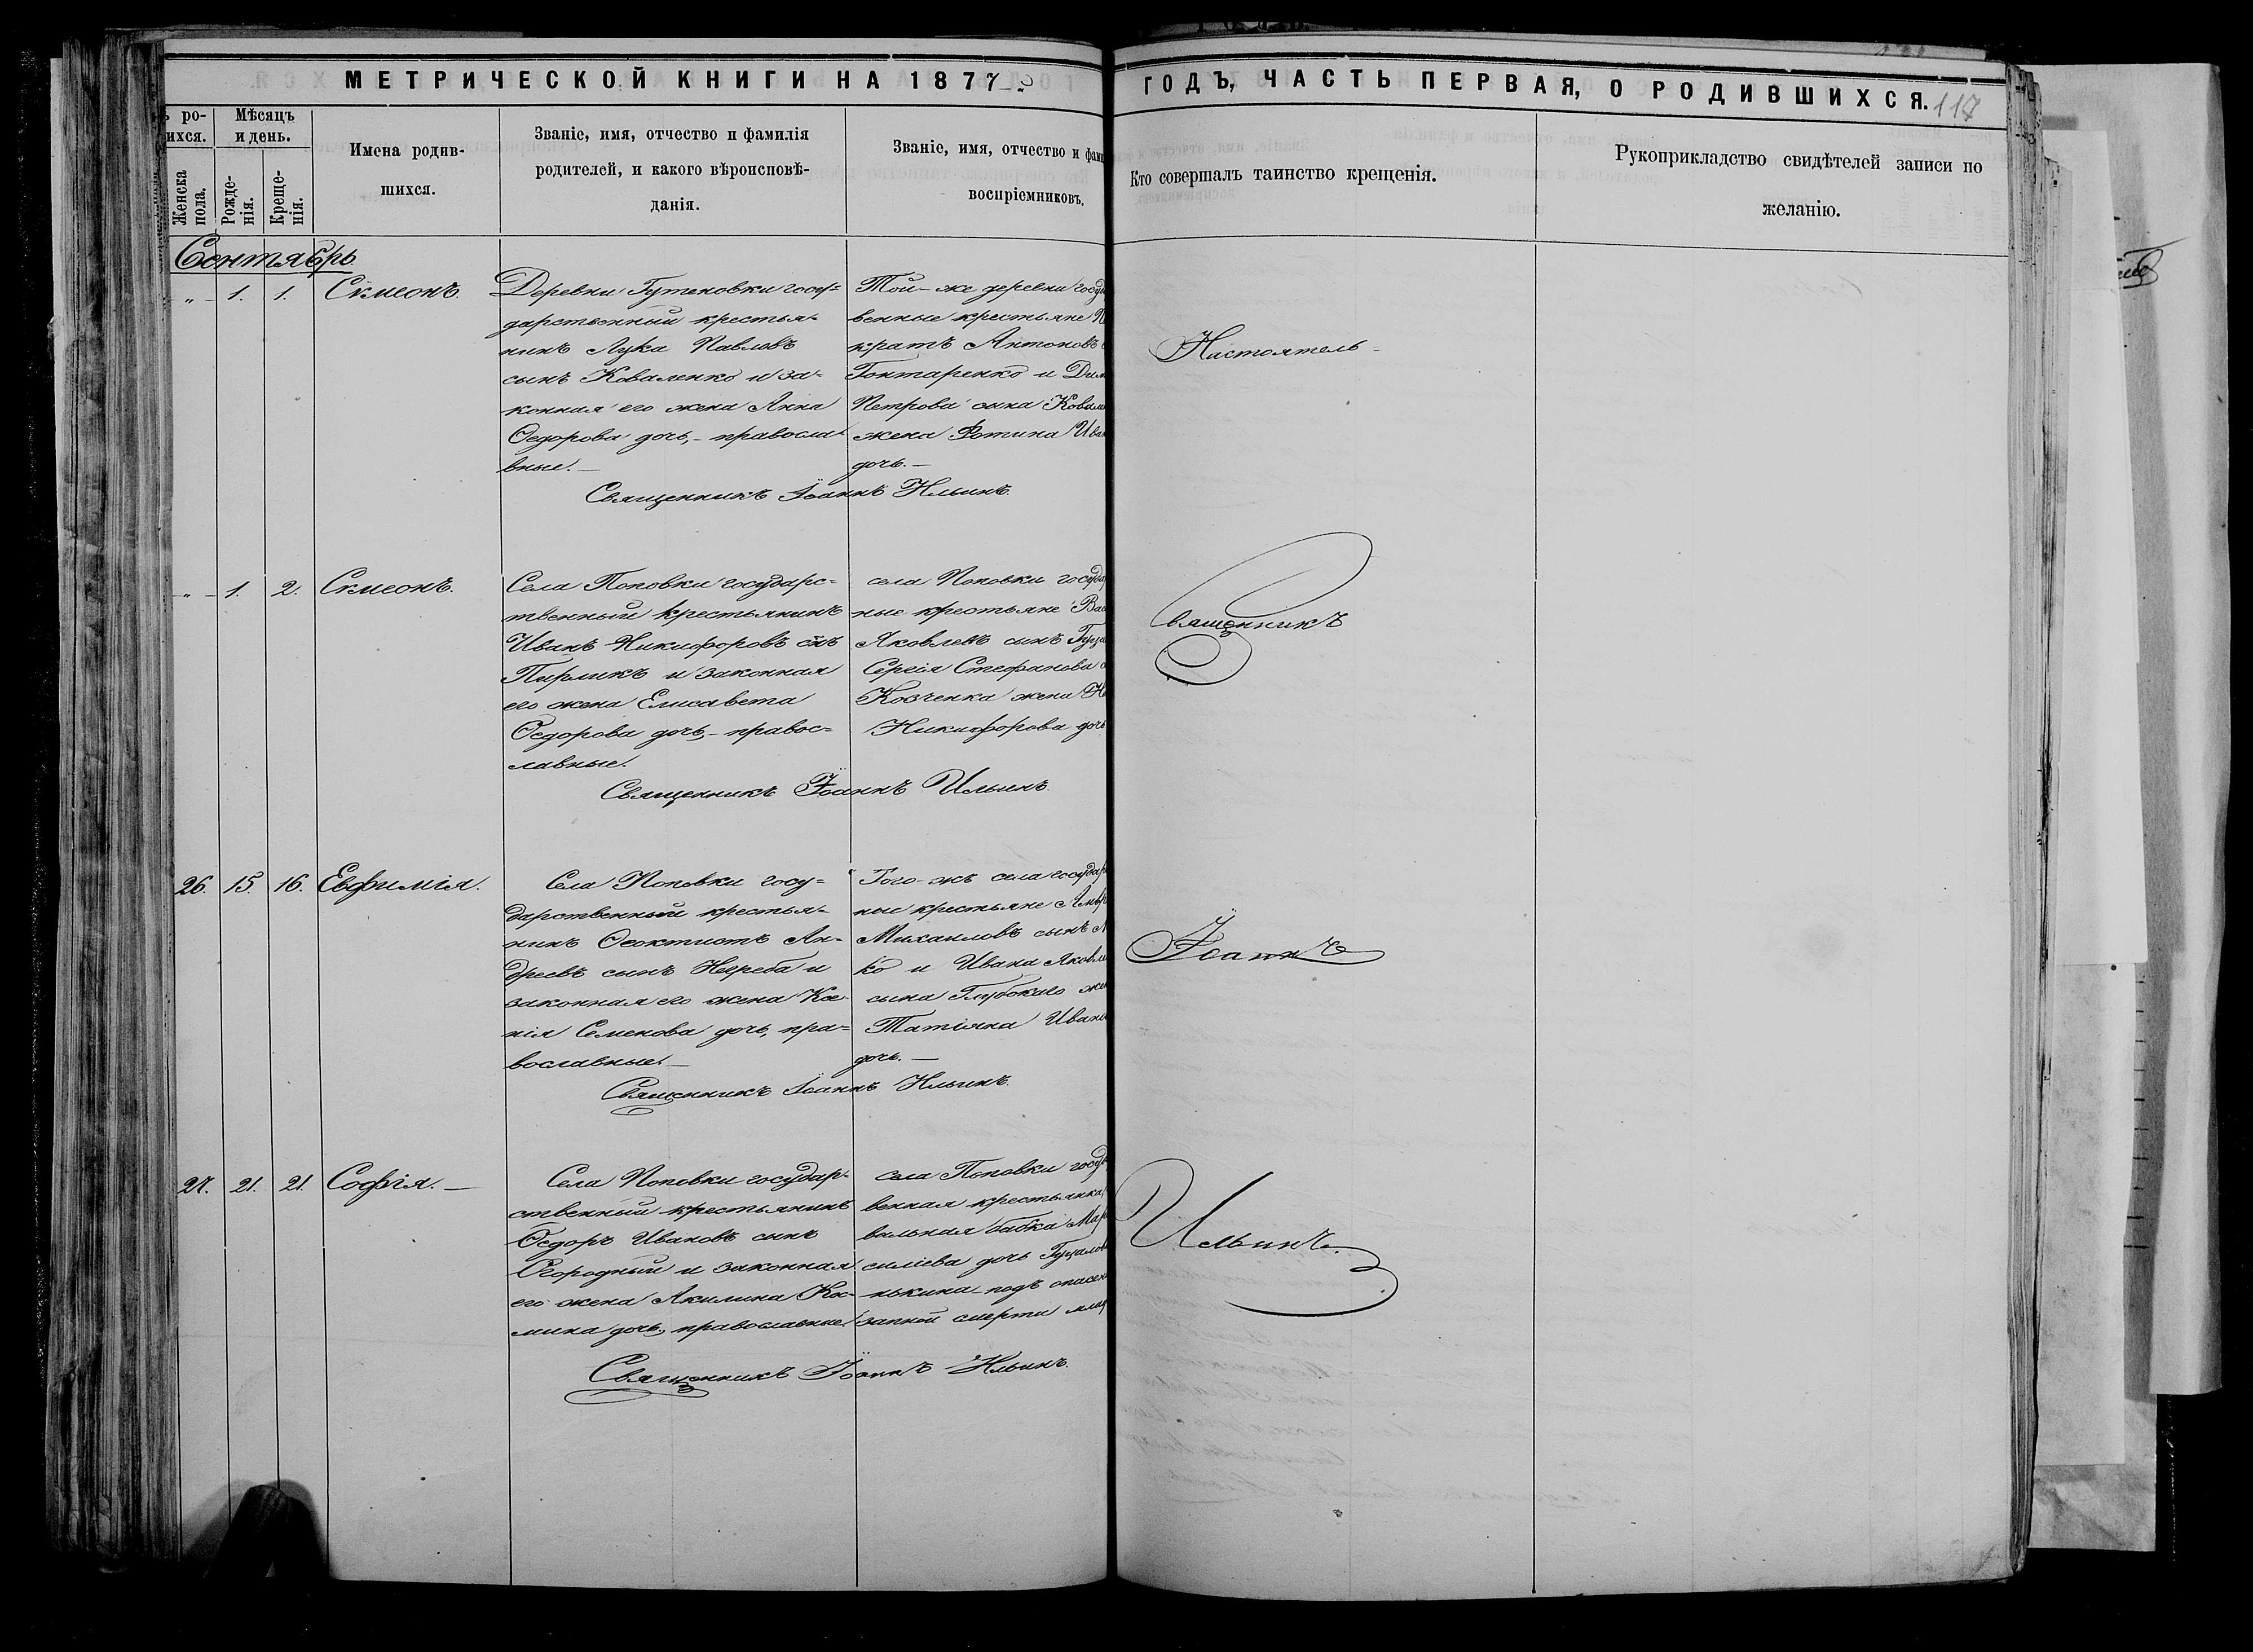 МЕТРИЧЕСКОЙ КНИГИ НА 1877
ГОДЪ, ЧАСТЬ ПЕРВАЯ, О РОДИВШИХСЯ. 117
ро-
ихся.
Женска
пола.
Мѣсяцъ
и день.
Рожде-
нія.
Креще-
нія.
Имена родив-
шихся.
Званіе, имя, отчество и фамилія
родителей, и какого вѣроисповѣ-
данія.
Званіе, имя, отчество и фами
воспріемниковъ.
Кто совершалъ таинство крещенія.
Рукоприкладство свидѣтелей записи по
желанію.
Сентябрь
„ 1. 1. Сѵмеонъ.
Деревни Гутеновки госу=
дарственный крестья=
нинъ Лука Павловъ
сынъ Коваленко и за=
конная его жена Анна
Ѳедорова дочь,- правосла
вные.
Той-же деревни госуд
венные крестьяне
кратъ Антоновъ
Гонтаренко и Дим
Петрова сына Ковал
жена Фотина Иван
дочь.-
Священникъ Іоаннъ Ильинъ.
Настоятель
„ 1. 2. Сѵмеонъ.
Села Поповки государс=
твенный крестьянинъ
Иванъ Никифоровъ снъ
Пирликъ и законная
его жена Елисавета
Ѳедорова дочь,- правос=
лавные.
села Поповки госуда
ные крестьяне Вас
Яковлевъ сынъ Гуца
Сергія Стефанова
Козченка жена
Никифорова дочь
Священникъ Іоаннъ Ильинъ.
Священникъ
26. 15. 16. Евфимія.
Села Поповки госу=
дарственный крестья=
нинъ Ѳеоктистъ Ан=
дреевъ сынъ Нереба и
законная его жена Ксе-
нія Семенова дочь, пра=
вославные.-
Того-жъ села государ
ные крестьяне
Михаиловъ сынъ
ко и Ивана Яковле
сына Глубокаго же
Татіяна Иван
дочь.-
Священникъ Іоаннъ Ильинъ.
Іоаннъ
27. 21. 21. Софія.-
Села Поповки государ=
ственный крестьянинъ
Ѳедоръ Ивановъ сынъ
Огородный и законная
его жена Акилина Кос-
мина дочь, православные.
села Поповки госуд
венная крестьянка
вальная бабка Мар
силіева дочь Гуцалов
нькина подъ опасен
запной смерти млад
Священникъ Іоаннъ Ильинъ.
Ильинъ.